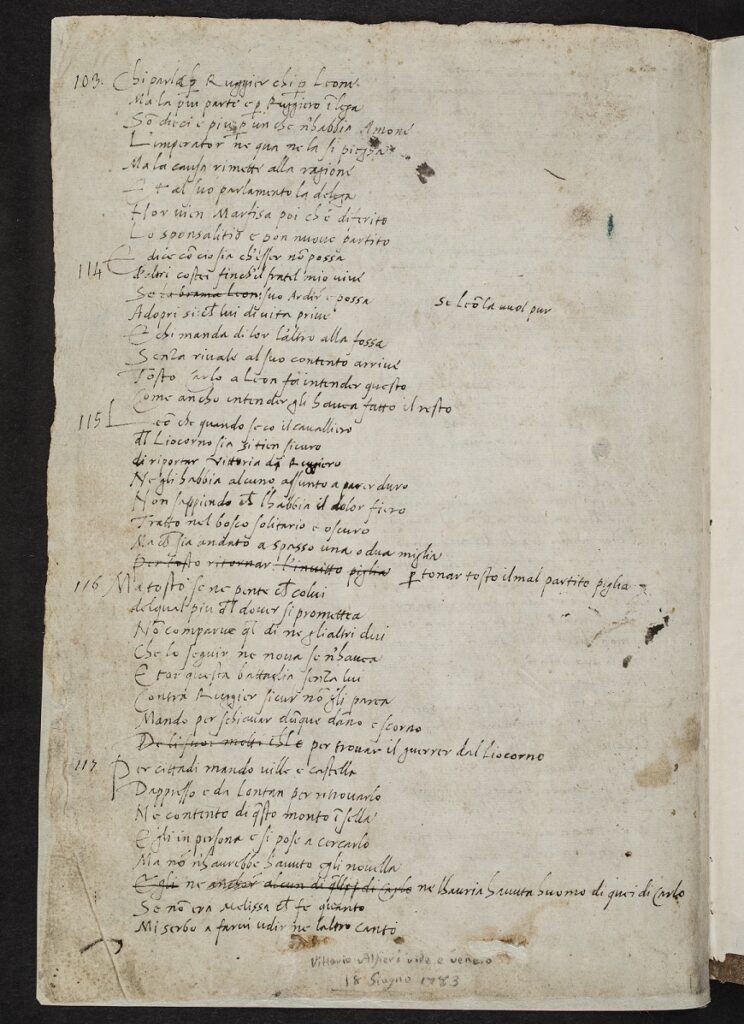 103. Chi parla p̄ Ruggier chi p̄ Leone
Ma la piu parte e p̄ Ruggiero ī lega
Sō dieci e piu p̄ un che n'habbia Amone
L'imperator ne qua ne la si piegha
Ma la causa rimette alla ragione
Et al suo parlamento la delega
Hor vien Marfisa poi ch'è diferito
Lo sponsalitio e pon nuovo partito
114 E dice cō cio sia ch'esser nō possa
D'altri costei finch'il fratel mio vive
Se la brama Leon suo Ardir e possa se Leō la vuol pur
Adopri si ch̄ lui di vita prive
E chi manda di lor l'altro alla fossa
Senza rivale al suo contento arrive
Tosto Carlo a Leon fa intender questo
Come ancho intender gli havea fatto il resto
115 Leō che quando seco il cavalliero
dl Liocorno sia si tien sicuro
di riportar vittoria di Ruggiero
Ne gli habbia alcuno assunto a parer duro
Non sappiendo ch̄ l'habbia il dolor fiero
Tratto nel bosco solitario e oscuro
Ma ch̄ sia andato a spasso una o dua miglia
Per tosto ritornar l'invitto piglia p̄ tonar tosto il mal partito piglia
116 Ma tosto se ne pente ch̄ colui
del qual piu ch̄l dover si promettea
Nō comparve ql̄ dì ne gli altri dui
Che lo seguir ne nova se n'havea
E tor questa battaglia senza lui
Contra Ruggier sicur nō gli parea
Mando per schivar dūque dāno e scorno
per trovar il guerrer dal Liocorno
117 Per cittadi mando ville e castella
D'appresso e da lontan per ritrovarlo
Ne contento di q̄sto monto ī sella
Egli in persona e si pose a cercarlo
Ma nō n'haurebbe havuto egli novella
E gli ne anchor alcun di q̄lli di Carlo ne l'hauria havuta huomo di quei di Carlo
Se nō era Melissa ch̄ fe quanto
Mi serbo a farvi udir ne l'altro canto
Vittorio Alfieri vide e venerò
18 Giugno 1783